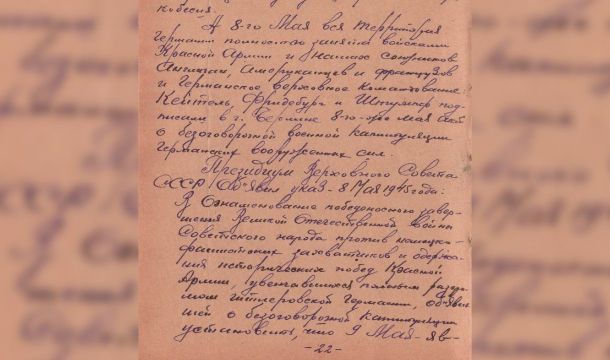 победил.
К 8-го Мая вся территория
Германии полностью занята войсками
Красной Армии и наших союзников
Англичан, Американцев и французов
и Германское верховное командование
Кейтель, Фридебург и Штумпф под-
писали в г. Берлине 8-го Мая акт
о безоговорочной военной капитуляции
Германских вооруженных сил.
Президиум Верховного Совета
СССР Об'явил указ - 8 Мая 1945 года:
В Ознаменование победоносного завер-
шения Великой Отечественной Войны
Советского народа против немецко-
фашистских захватчиков и одержа-
ния исторических побед Красной
Армии, увенчавшихся полным разгро-
мом гитлеровской Германии, Об'явив-
шей о безоговорочной капитуляции
установить, что 9 Мая - яв-
-22-